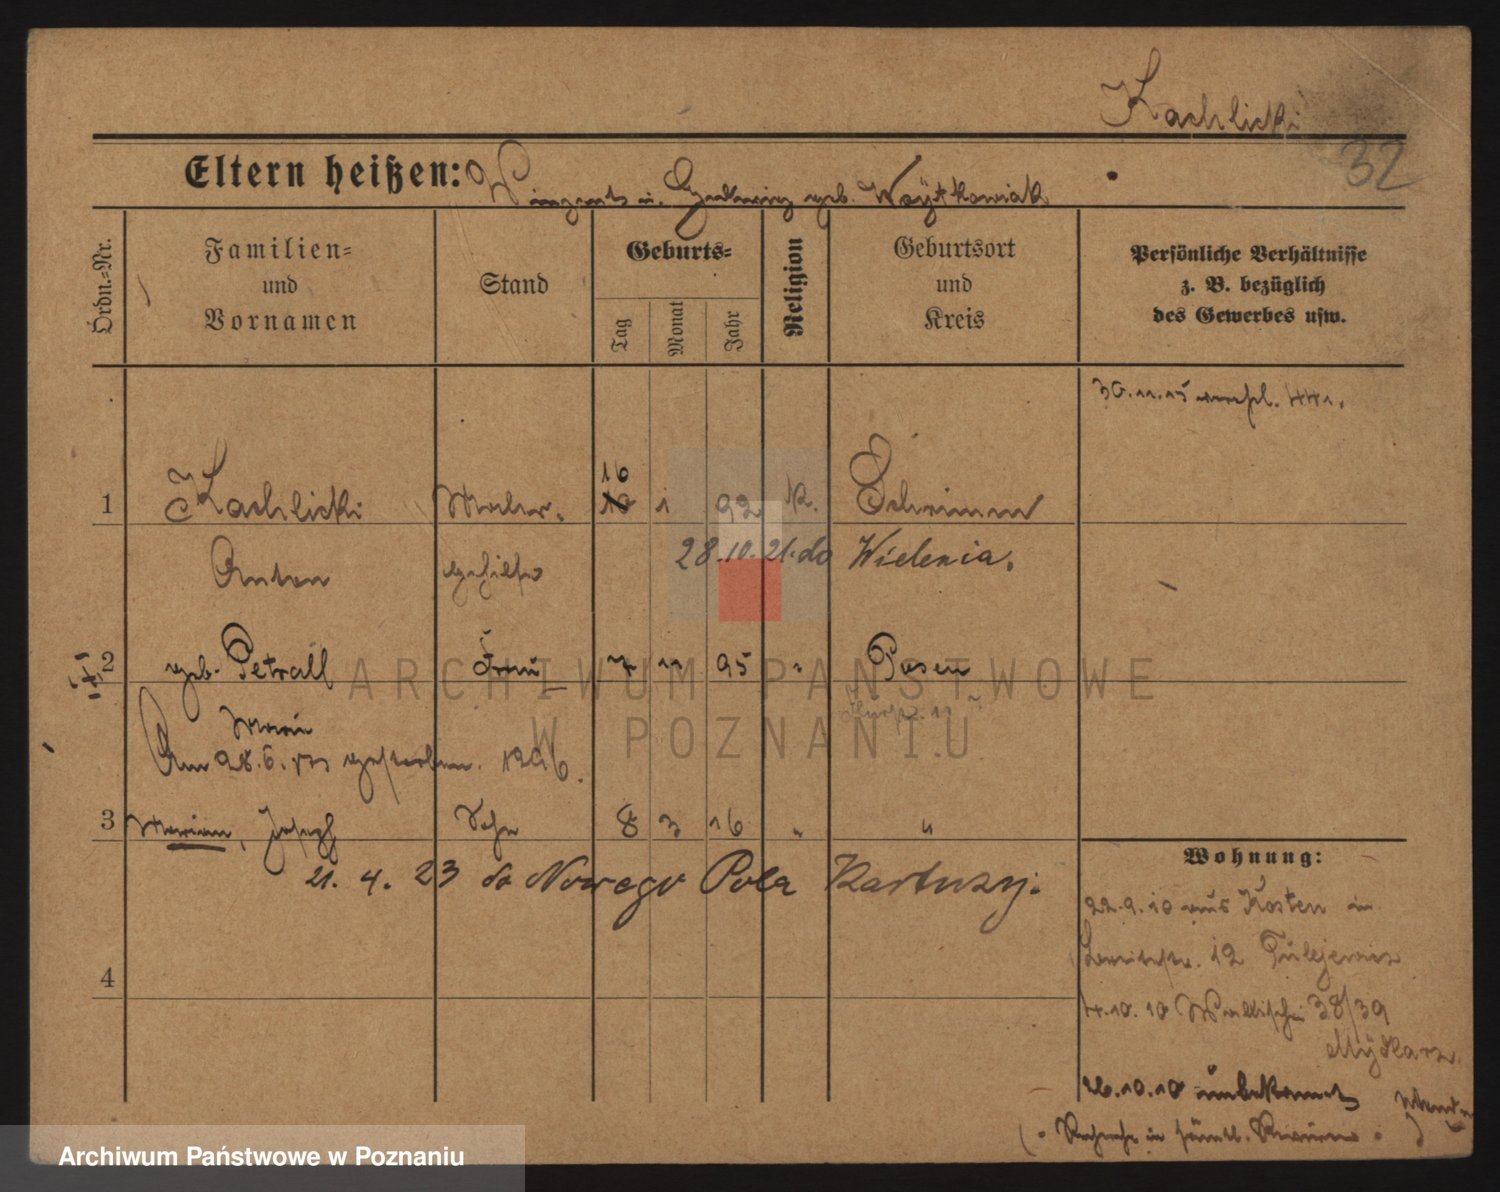 Kachlicki
32
Eltern heißen: Winzent u. Hedwig geb. Woytkowiak
Ordn.-Nr.
Familien-
und
Vornamen
Stand
Geburts-
Tag
Monat
Jahr
Religion
Geburtsort
und
Kreis
Persönliche Verhältnisse
z. B. bezüglich
des Gewerbes usw.
30.11.15
16
1 Kachlicki Maler- 1 92 k. Schrimm
Anton gehilfe 28.10.21. do Wielenia.
2 geb. Petrall Frau 7 11 95 " Posen
Maria
Am 28.6. gestorben. 1296.
3 Marian, Joseph Sohn 8 3 16 " "
21. 4. 23 do Nowego Pola Kartuzy.
4
Wohnung:
22.9.10 aus Kosten in
12
4.10.10 Wallischei 38/39
Mydlarz
26.10.10 unbekannt
ARCHIWUM PAŃSTWOWE
W POZNANIU
Archiwum Państwowe w Poznaniu